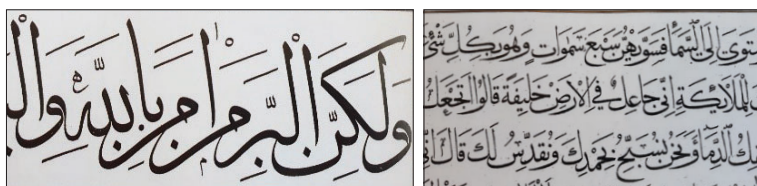 وَلَكِنَّ الْبِرَّ مَنْ اٰمَنَ بِاللّٰهِ وَالْيَ
سْتَوٰى اِلَى السَّمَآءِ فَسَوّٰيهُنَّ سَبْعَ سَمٰوَاتٍ وَهُوَ بِكُلِّ شَيْ
لِلْمَلٰٓئِكَةِ اِنّٖى جَاعِلٌ فِى الْاَرْضِ خَلٖيفَةً قَالُوا اَتَجْعَلُ
فِكُ الدِّمَآءَ وَنَحْنُ نُسَبِّحُ بِحَمْدِكَ وَنُقَدِّسُ لَكَ قَالَ اِنّٖى